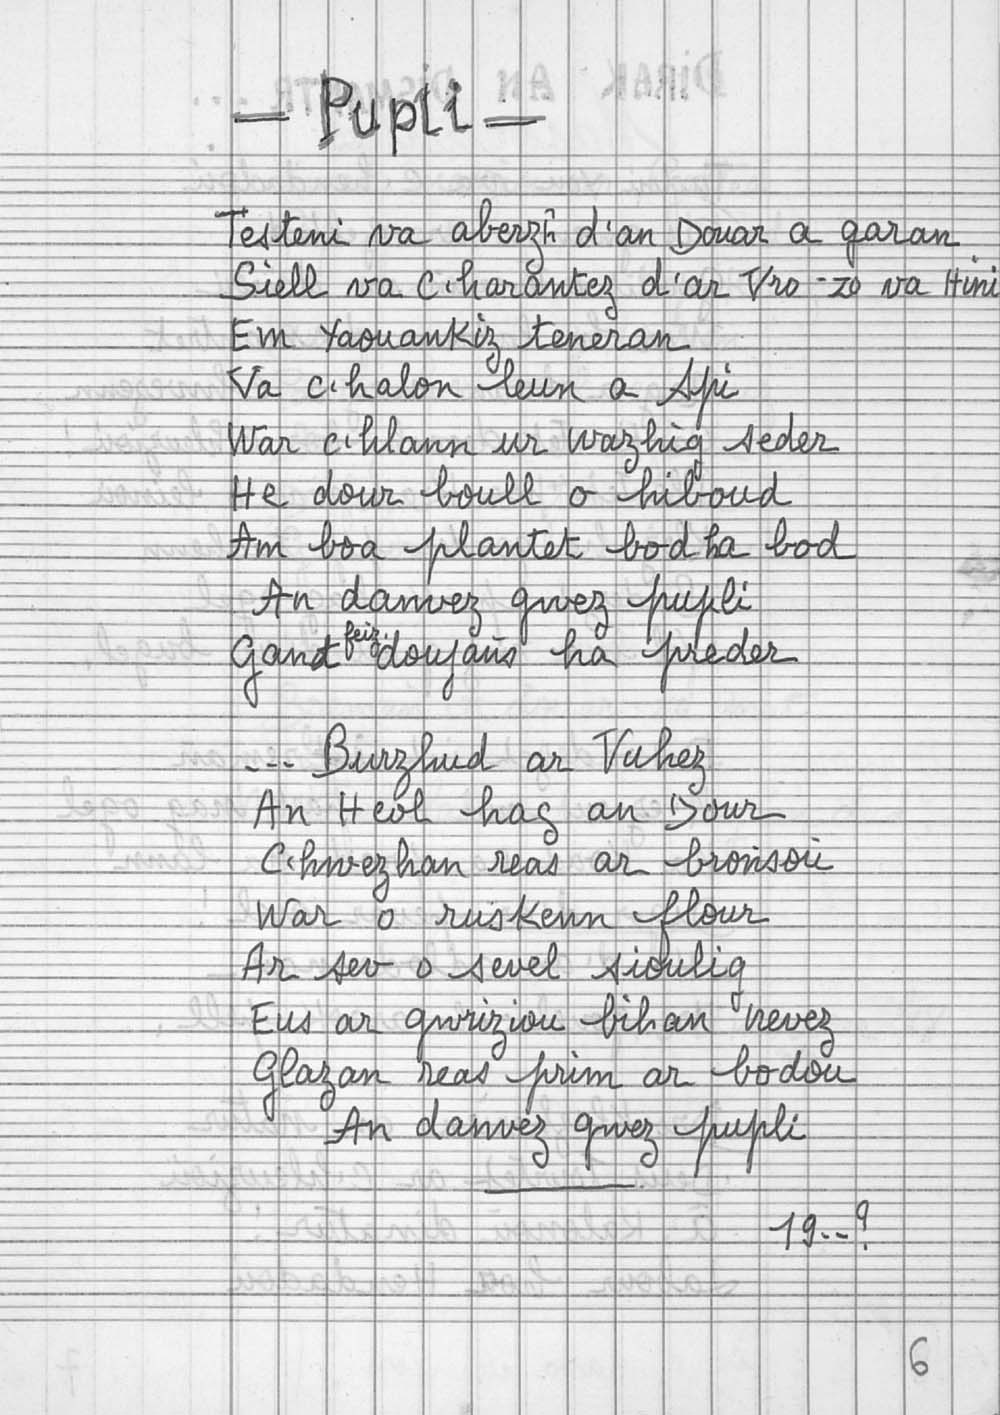 — Pupli —
Testeni va aberzh d'an Douar a garan
Siell va C'harantez d'ar Vro-zo va Hini
Em Yaouankiz teneran
Va c'halon leun a Spi
War c'hlann ur wazhig seder
He dour boull o hiboud
Am boa plantet bod ha bod
An danvez gwez pupli
Gand feiz doujañs ha preder
... Burzhud ar Vuhez
An Heol hag an Dour
C'hwezhan reas ar broñsoù
War o ruskenn flour
Ar sev o sevel sioulig
Eus ar gwriziou bihan nevez
Glazan reas prim ar bodou
An danvez gwez pupli
19--?
6